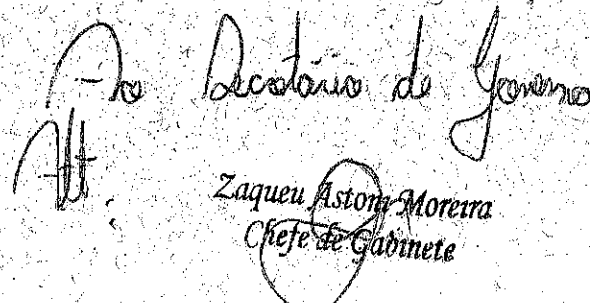 Ao Secretário de Governo
Att.
Zaqueu Astoni Moreira
Chefe de Gabinete